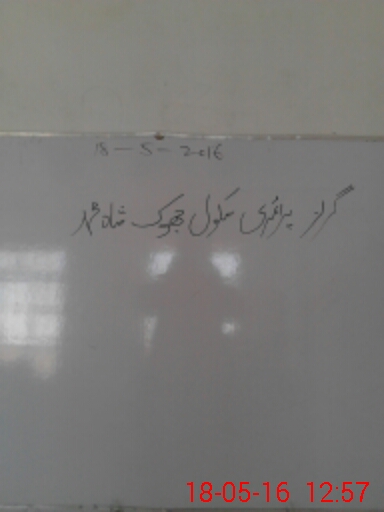 18-5-2016
گرلز پرائمری سکول جھوک شاہ محمد
18-05-16 12:57